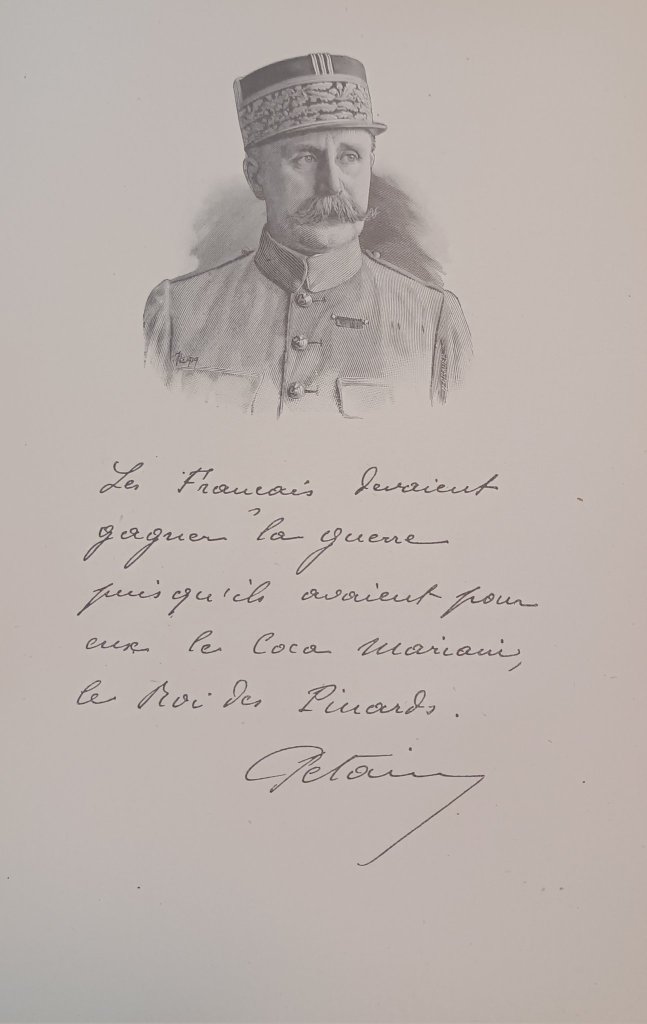 Les Francais devaient
gagner la guerre
puisqu'ils avaient pour
eux le Coca Mariani,
le Roi des Pinards.
Petain